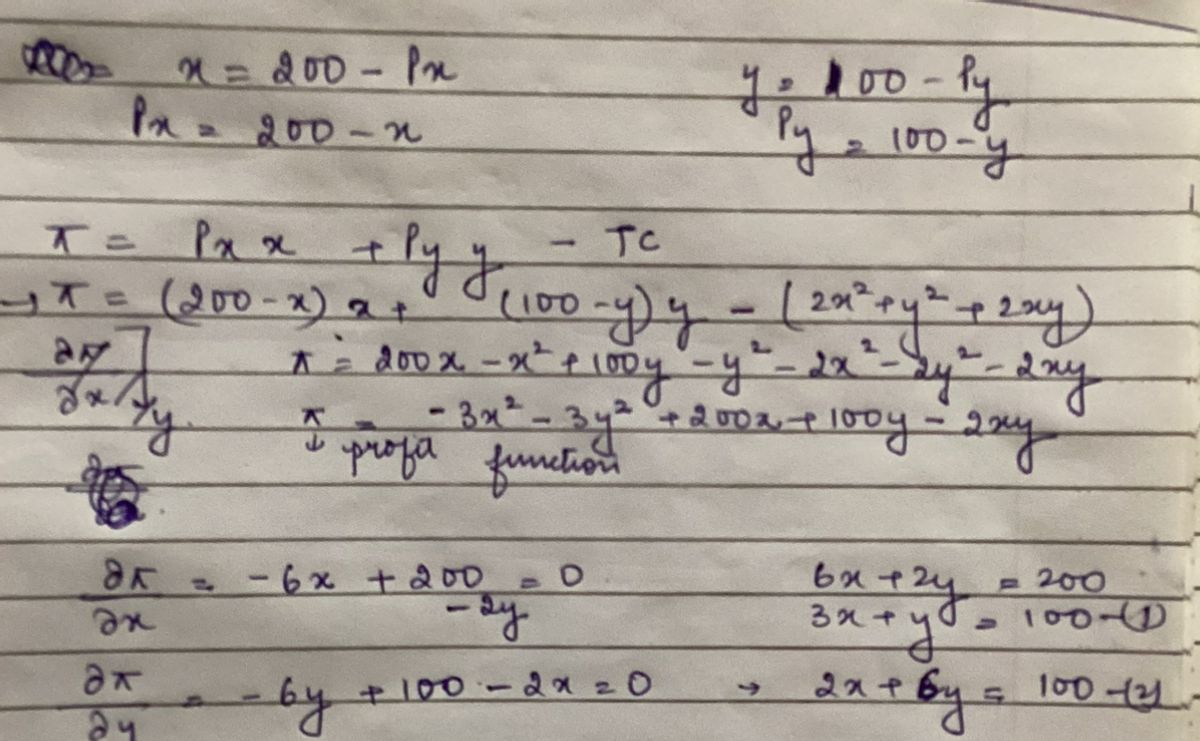 x = 200 - Px y = 100 - Py
Px = 200 - x Py = 100 - y
π = Px x + Py y - TC
→ π = (200 - x) x + (100 - y) y - (2x² + y² + 2xy)
∂π/∂x / y π = 200x - x² + 100y - y² - 2x² - 2y² - 2xy
π = -3x² - 3y² + 200x + 100y - 2xy
↓ profa function
∂π/∂x = -6x + 200 - 2y = 0 6x + 2y = 200
3x + y = 100 -(1)
∂π/∂y = -6y + 100 - 2x = 0 → 2x + 6y = 100 -(2)